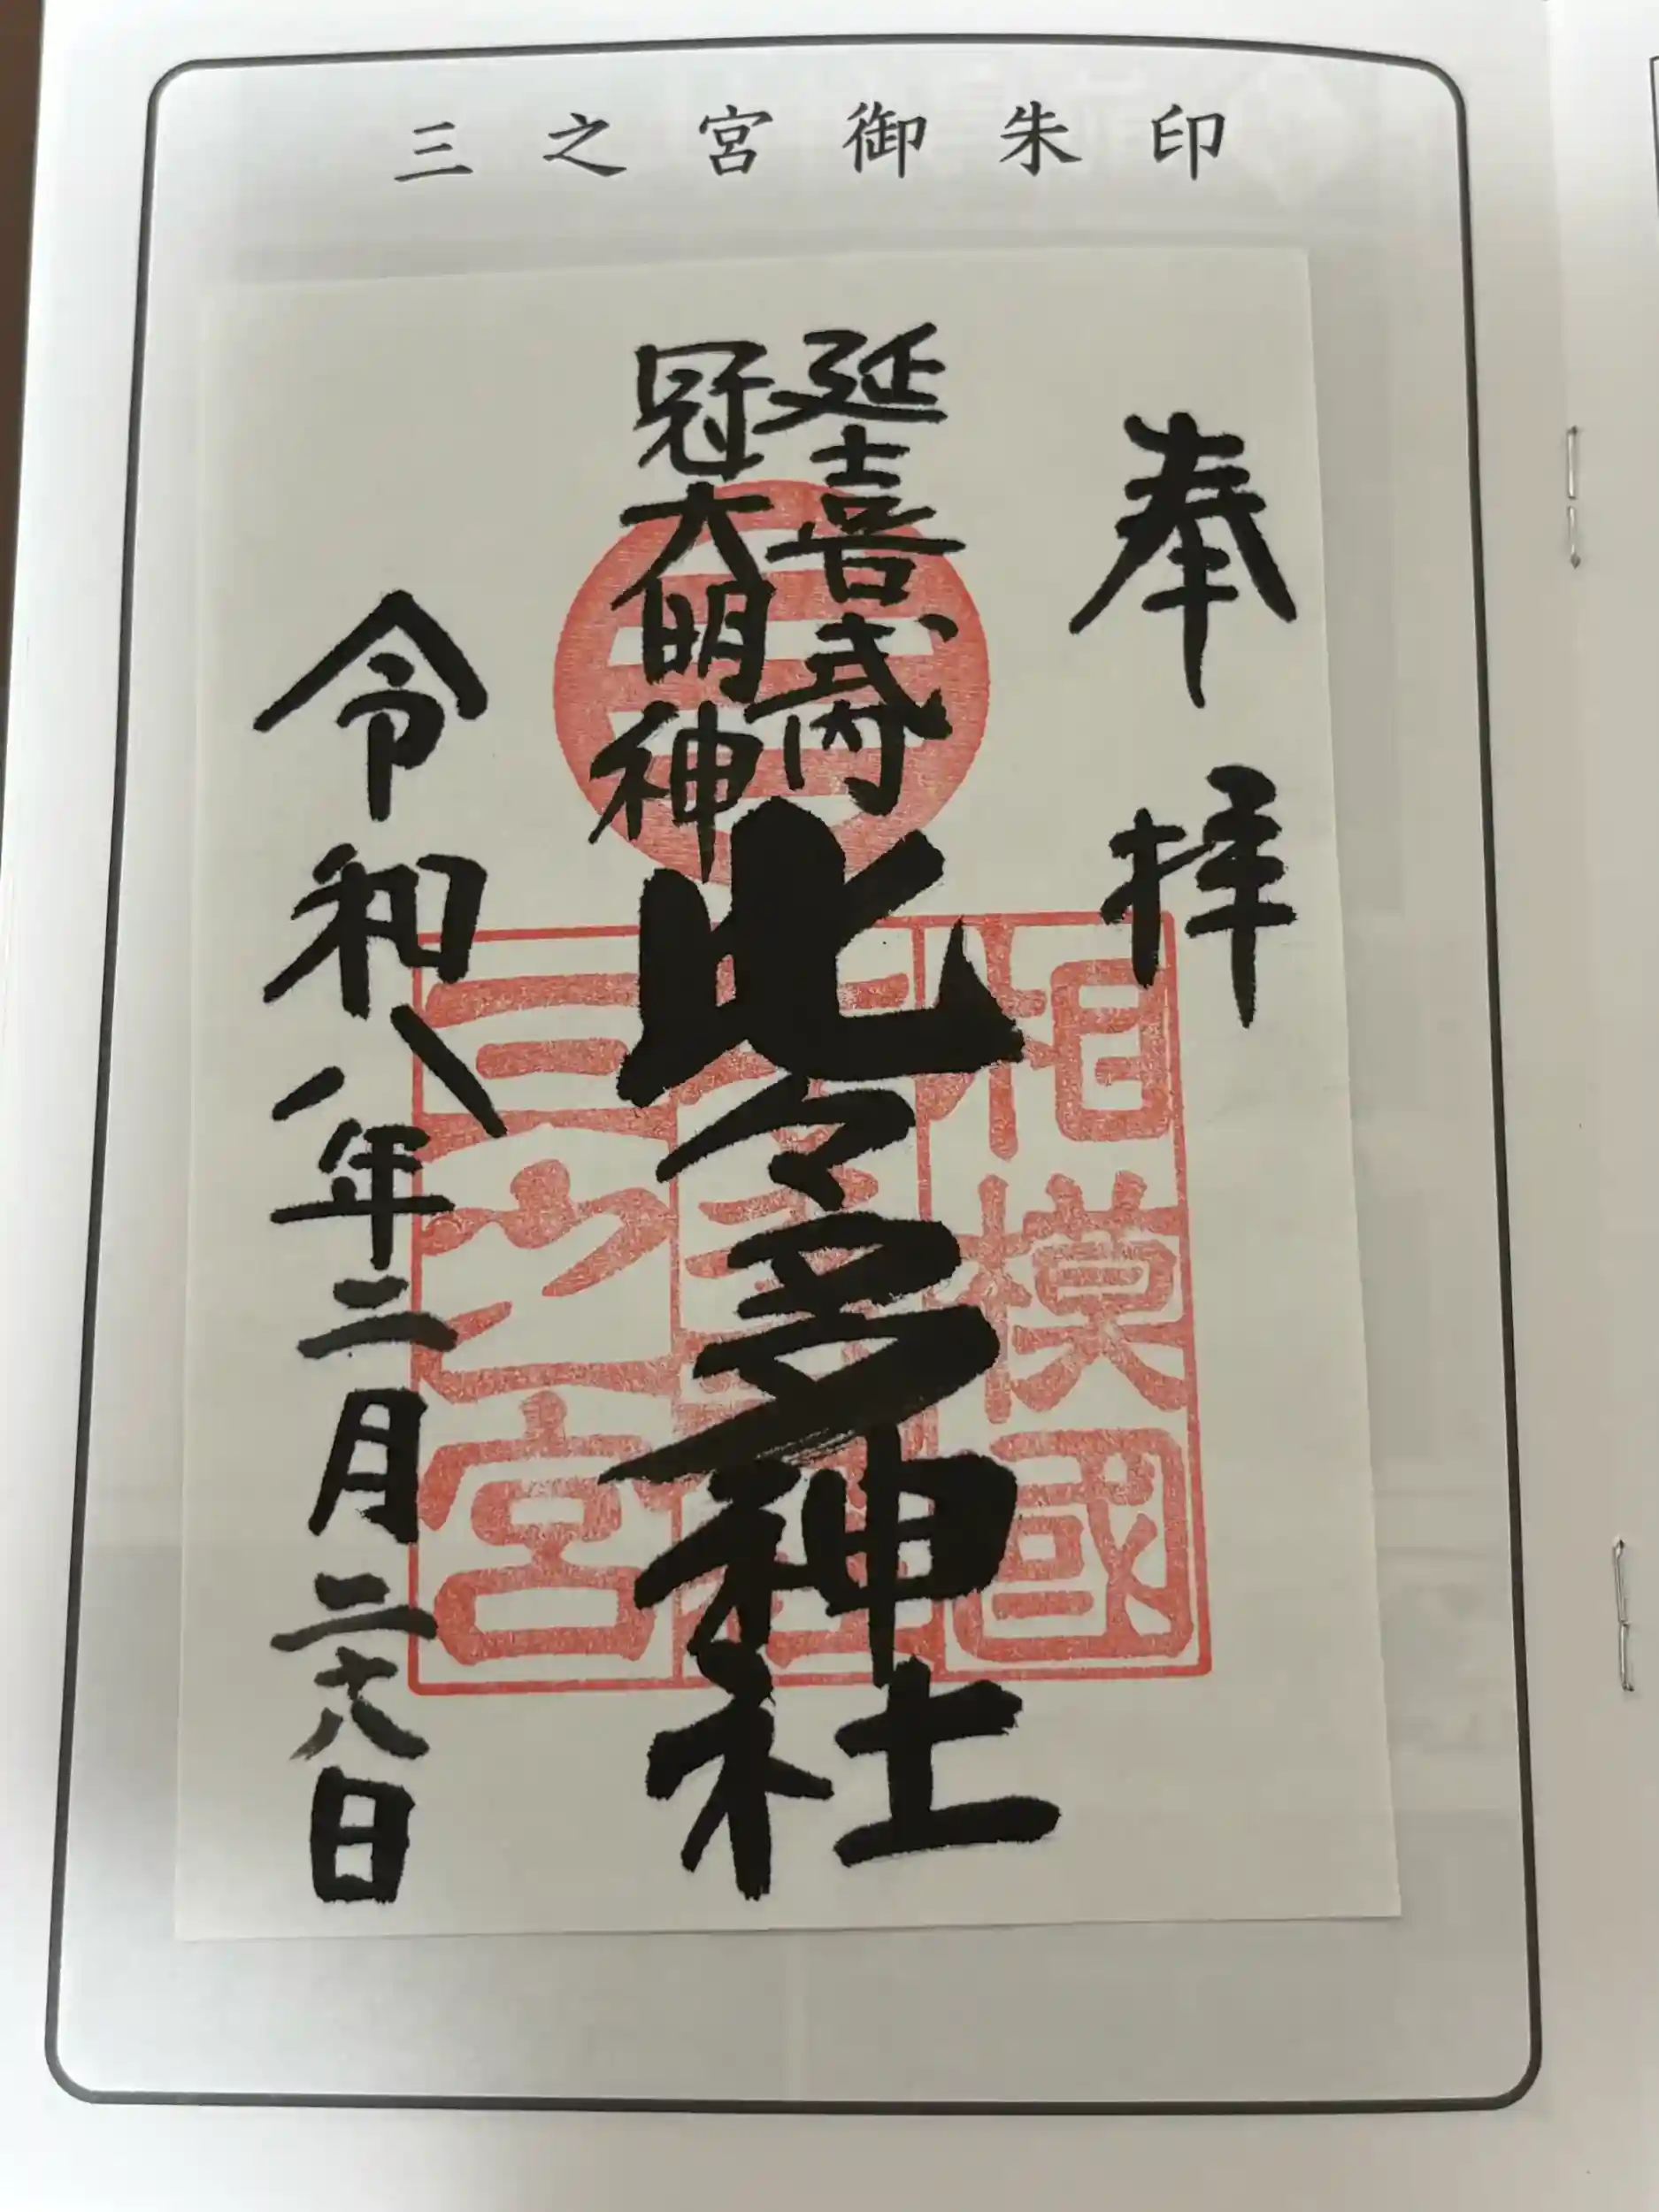 三之宮御朱印
奉拝
延喜式内
冠大明神
比々多神社
令和八年二月二十八日
相模國
三之宮